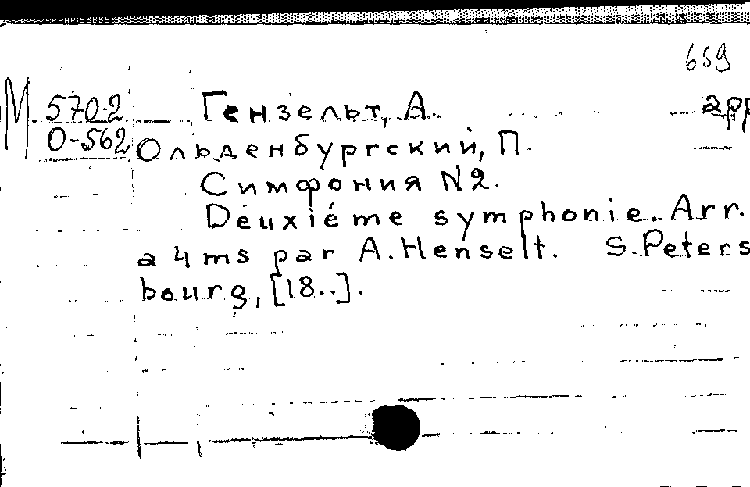 659
М 570-2 Гензельт, А. арр
О-562 Ольденбургский, П.
Симфония N2.
Deuxiéme symphonie. Arr.
a 4 ms par A. Henselt. S. Peters
bourg, [18..].